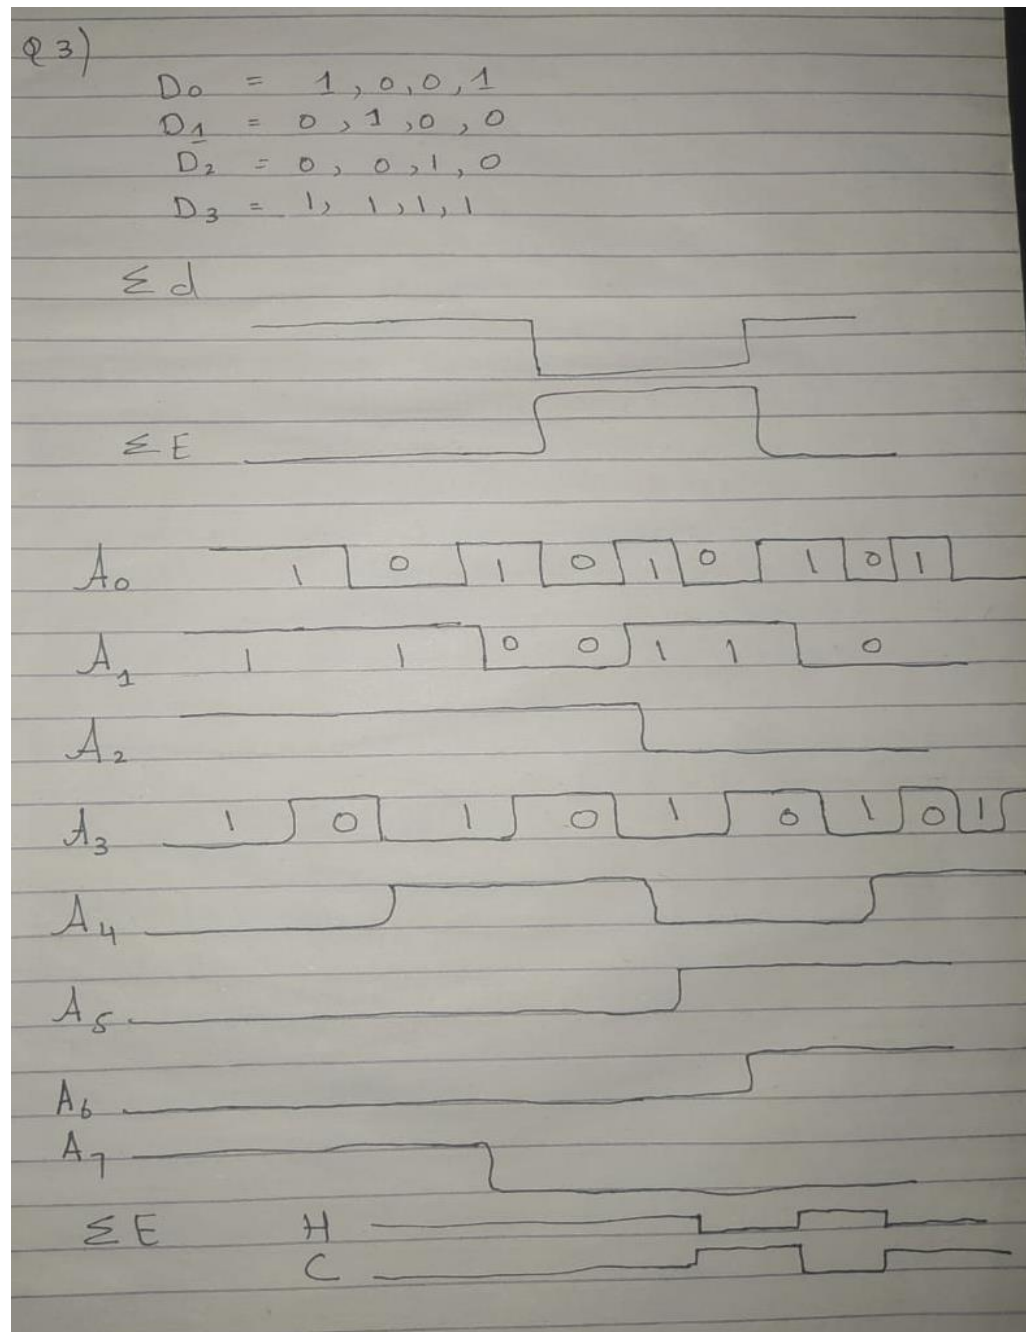 Q3)
D0 = 1, 0, 0, 1
D1 = 0, 1, 0, 0
D2 = 0, 0, 1, 0
D3 = 1, 1, 1, 1
Σd
ΣE
A0 1 0 1 0 1 0 1 0 1
A1 1 1 0 0 1 1 0
A2
A3 1 0 1 0 1 0 1 0 1
A4
A5
A6
A7
ΣE H
C